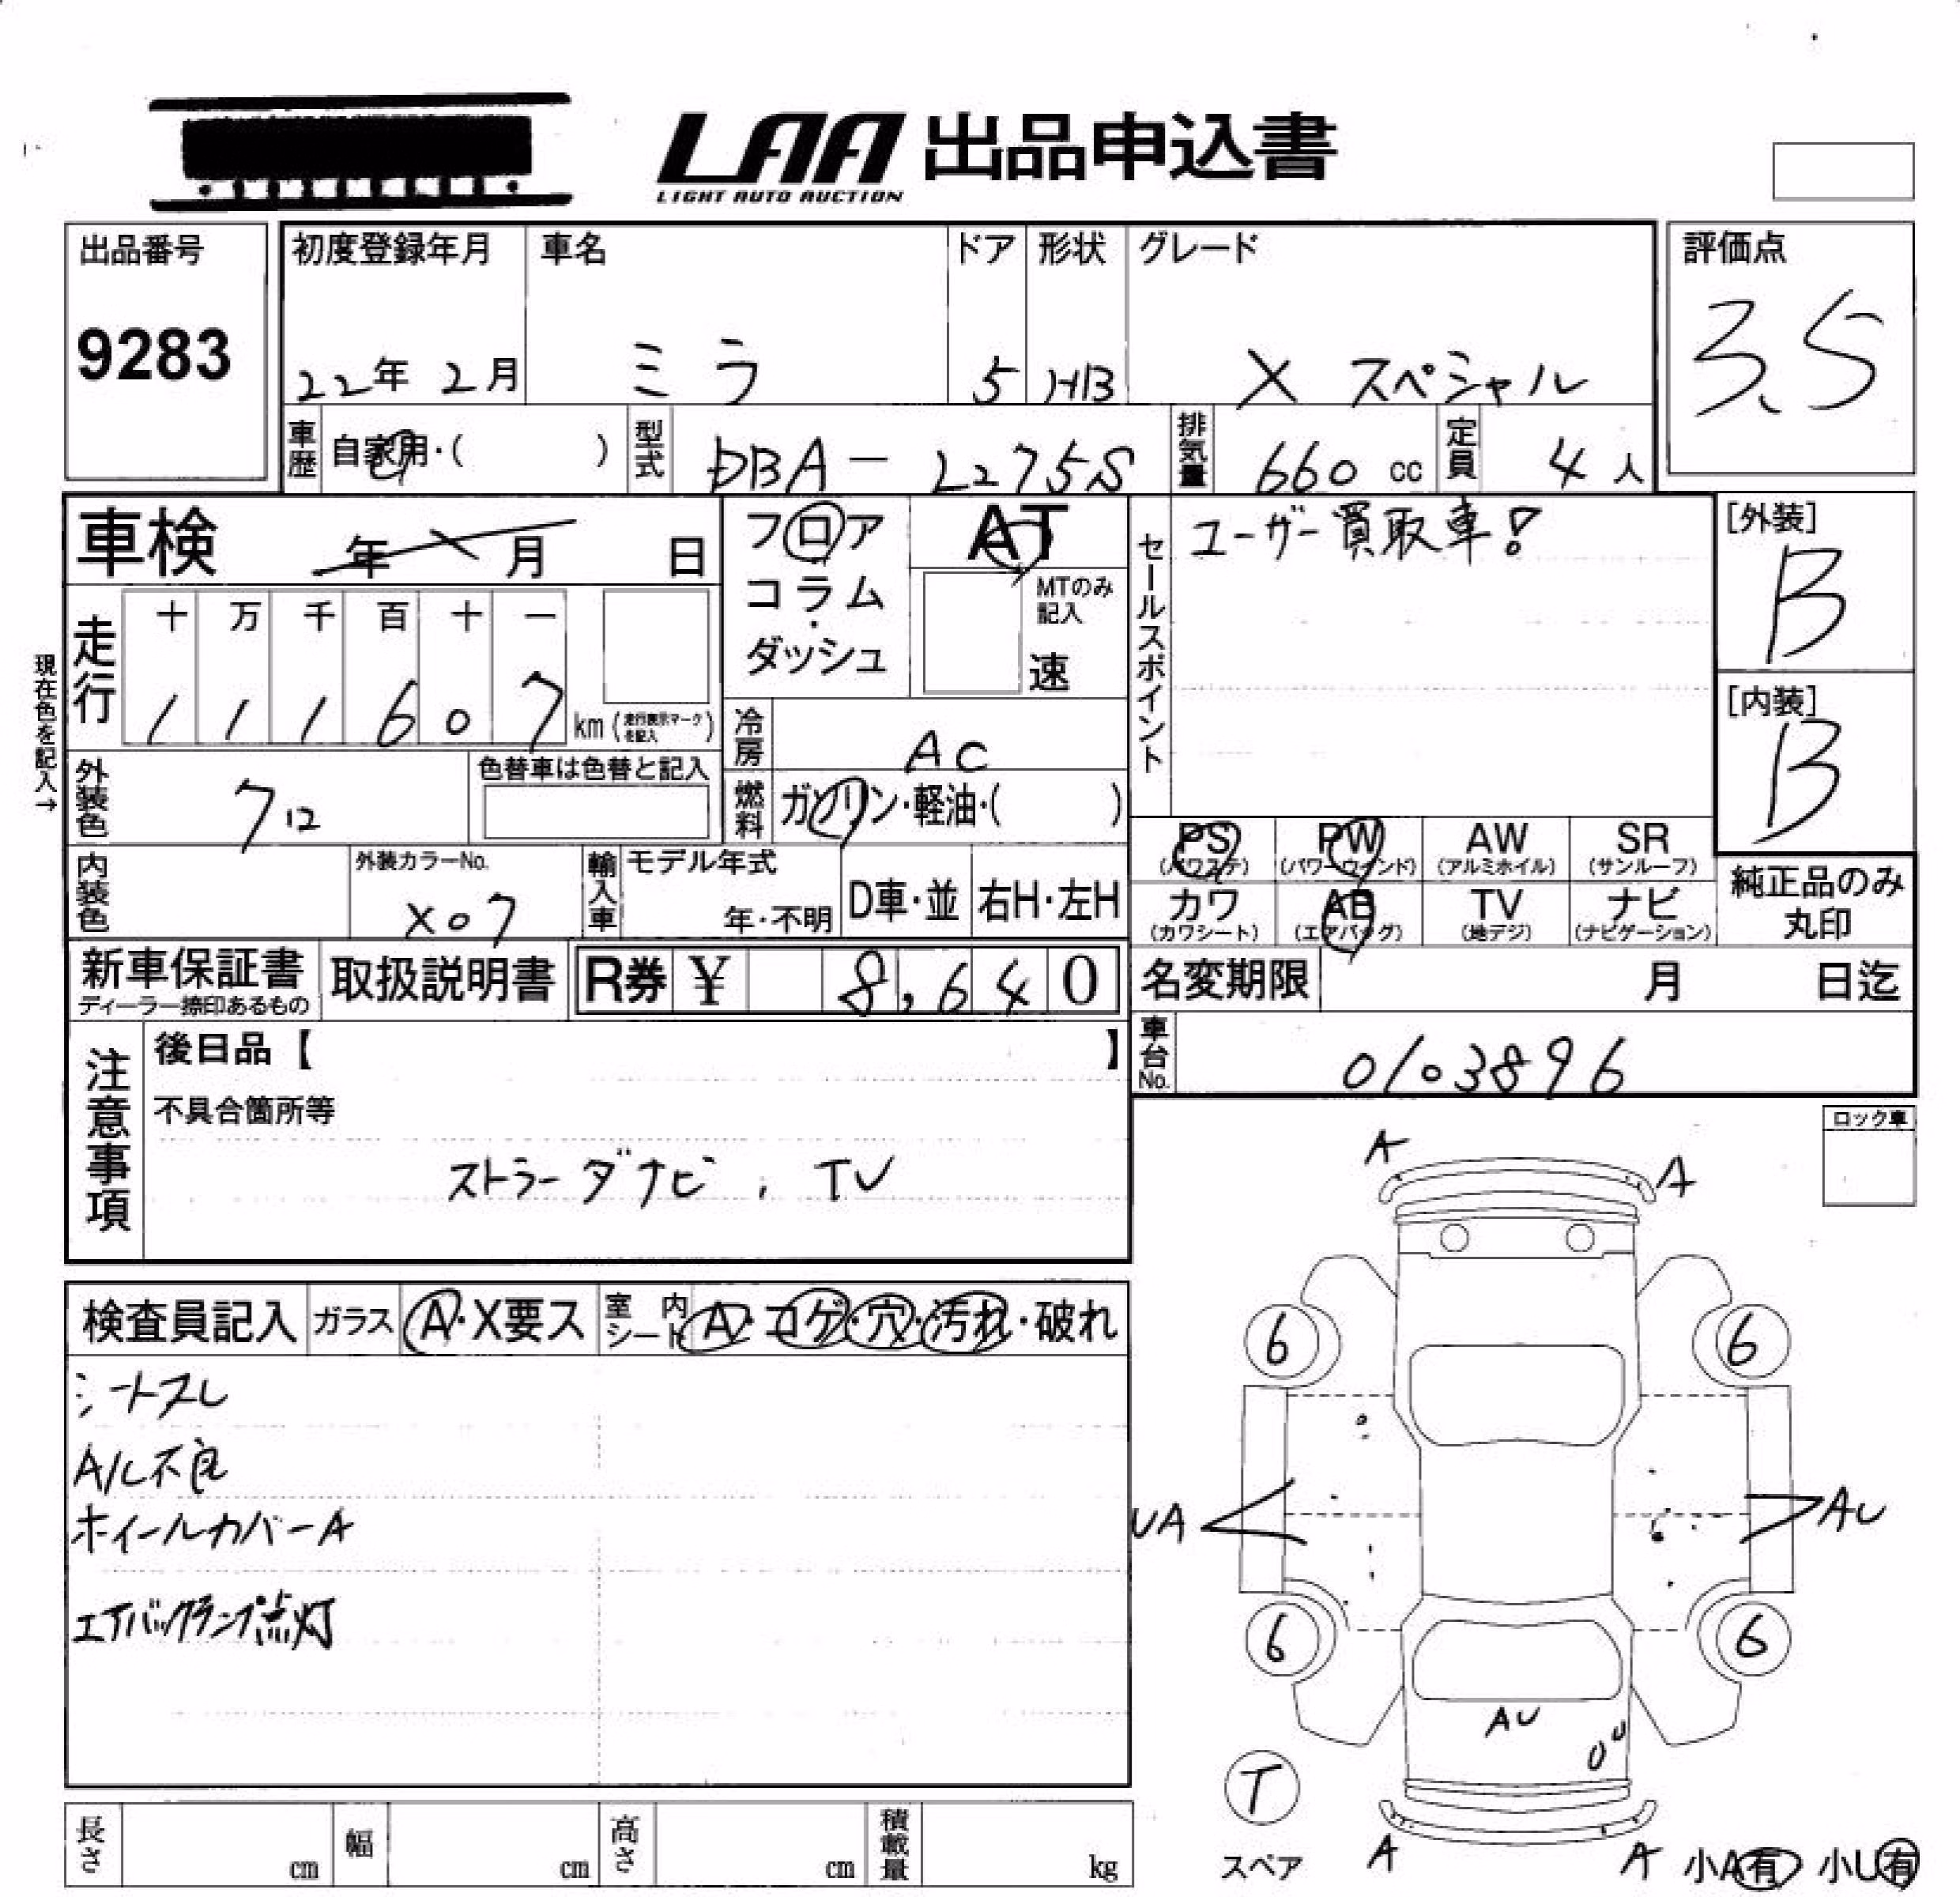 LAA 出品申込書
LIGHT AUTO AUCTION
出品番号
9283
初度登録年月
22年 2月
車名
ミラ
ドア
5
形状
HB
グレード
X スペシャル
評価点
3.5
車歴 自家用・( )
型式 DBA-L275S
排気量 660 cc
定員 4人
車検 年 月 日
フロア
コラム
・
ダッシュ
AT
MTのみ
記入
速
セールスポイント
ユーザー買取車!
[外装]
B
[内装]
B
現在色を記入→
走行
十 万 千 百 十 一
1 1 1 6 0 7 km (走行表示マークを記入)
冷房 AC
燃料 ガソリン・軽油・( )
外装色 712
色替車は色替と記入
内装色
外装カラーNo.
X07
輸入車
モデル年式
年・不明
D車・並
右H・左H
PS
(パワステ)
PW
(パワーウィンド)
AW
(アルミホイル)
SR
(サンルーフ)
カワ
(カワシート)
AB
(エアバッグ)
TV
(地デジ)
ナビ
(ナビゲーション)
純正品のみ
丸印
新車保証書
ディーラー捺印あるもの
取扱説明書
R券 ¥ 8,640
名変期限 月 日迄
車台No. 0103896
注意事項
後日品【 】
不具合箇所等
ストラーダナビ、TV
ロック車
検査員記入
ガラス A・X要ス
室内シート A・コゲ・穴・汚れ・破れ
シートスレ
A/L不良
ホイールカバーA
エアバッグランプ点灯
A
A
6
6
UA
AU
6
6
AU
U
U
T
スペア
A
A
小A有 小U有
長さ cm
幅 cm
高さ cm
積載量 kg